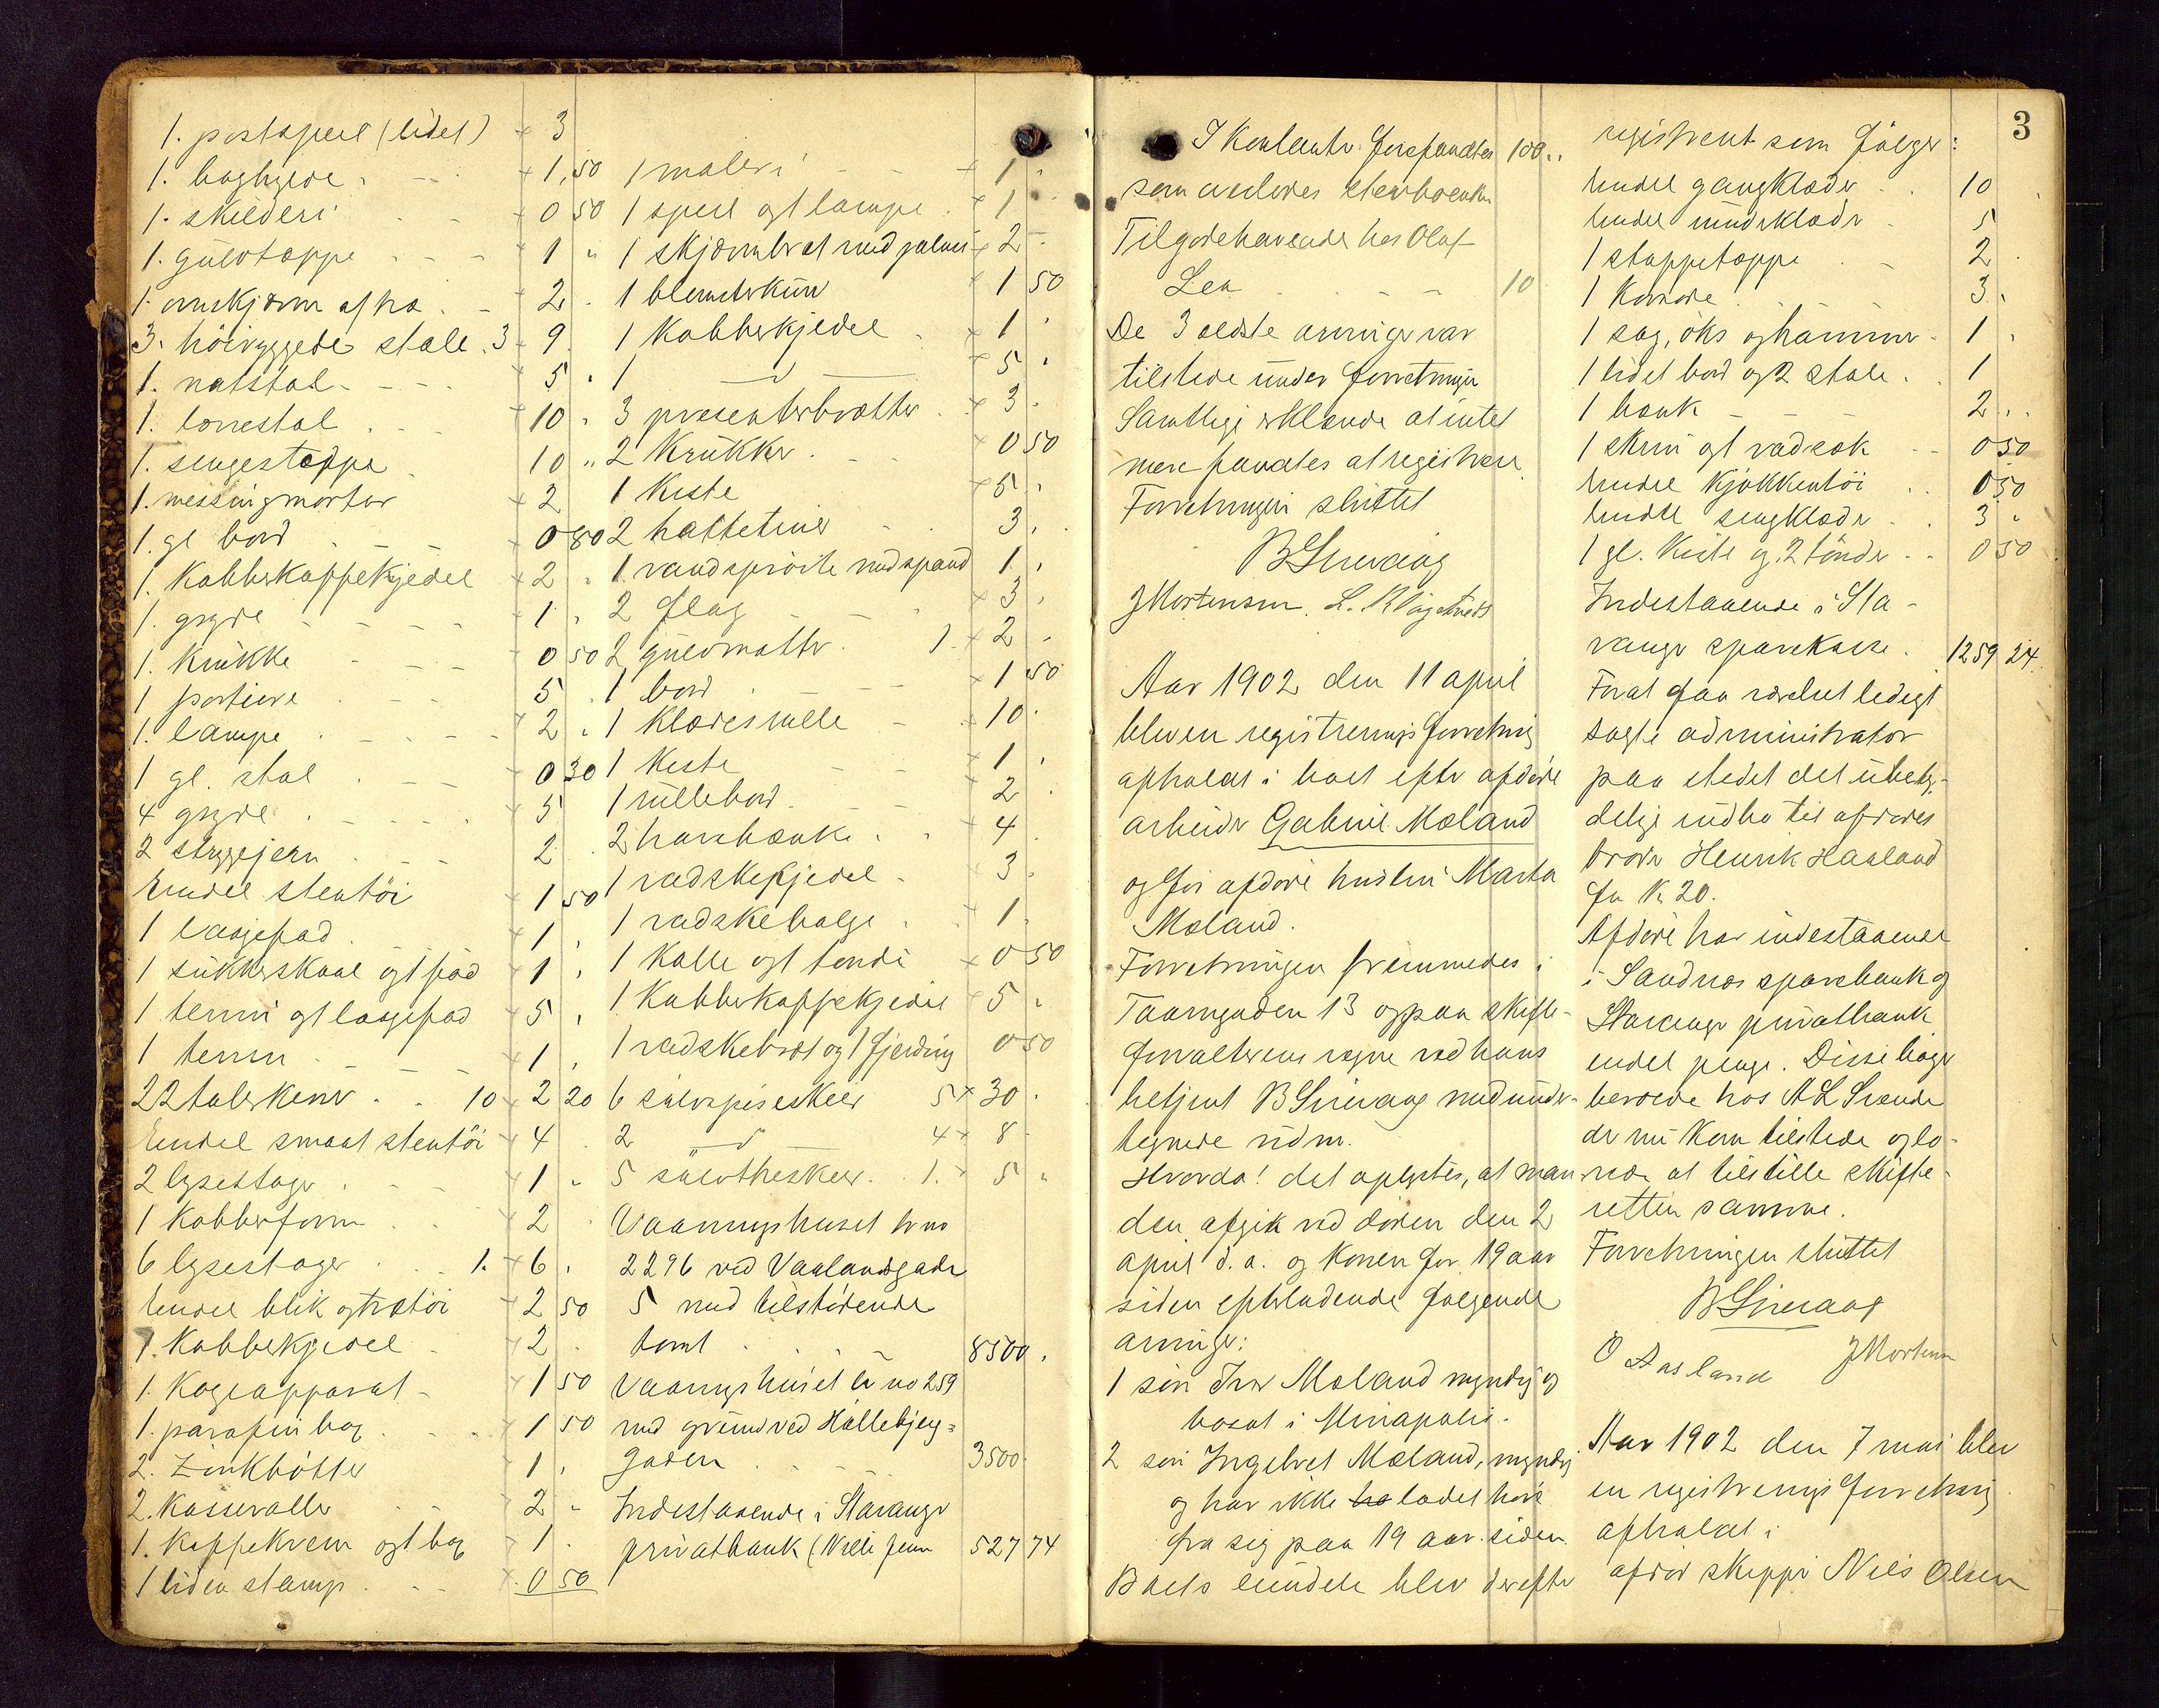 1. postapeil (lidet) + 3
1. boghylde + 1,50
1. skilderi + 0 50
1. gulvtæppe + 1 "
1. ovnskjærm af træ 2
3. höiryggede stole. 3 + 9
1. natstol 5
1. lænestol + 10
1. sengestæppe 10 "
1. messingmorter + 2
1. gl bord 0 80
1. Kobberkaffekjedel + 2
1. gryde + 1
1. Krukke 0 50
1 portiere 5
1. lampe + 2
1 gl. stol + 0 30
4 gryde + 5
2 strygejern 2
Endel stentöi 1 50
1 laagefad + 1
1 sukkerskaal og 1 fad + 1
1 terrin og 1 laagefad + 5
1 terrin + 1
22 talerkener 10 + 2 20
Endel smaat stentöi + 4
2 lysestager + 1
1 Kobberform + 2
6 lysestager 1. + 6
Endel blik og trætöi + 2 50
1. Kobberkjedel + 2
1. Kogeapparat + 1 50
1. parafin + 1 50
2. Zinkbötter 1
2. Kasseroller 2
1. Kaffekvern og 1 + 1
1 liden stamp + 0 50
1 maleri + 1
1 speil og 1 lampe + 1
1 skjærmbræt med + 2
1 blomsterkurv + 1 50
1 Kobberkjedel + 1
1 — d — + 5
3 præsenterbrætter + 3
2 Krukker + 0 50
1 Kiste + 5
2 hatteteiner 3
1 vandspröite med spand 1
2 flag + 3
2 gulvmatter 1 + 2
1 bord + 1 50
1 Klædesrulle + 10
1 Kiste + 1
1 rullebord + 2
2 havebænke + 4
1 vadskekjedel + 3
1 vadskebalge + 1
1 Kolle og 1 tönde + 0 50
1 Kobberkaffekjedel + 5
1 vadskebræt og 1 fjerding 0 50
6 sölvspiseskeer 5 + 30
2 — d — 4 + 8
5 sölvtheskeer 1. + 5
Vaaningshuset br no
2296 ved Vaalandsgade
5 med tilstödende
tomt 8500
Vaaningshuset br no 259
med grund ved Hallebjerg=
gaden 3500
Indestaaende i Stavanger
privatbank ( 527 74
I Kontanter forefandtes 100 "
som
Tilgodehavende hos Olaf
Lea 10
De 3 ældste arvinger var
tilstede under forretningen
Samtlige erklærede at intet
mere fandtes at registrere
Forretningen sluttet
B Sirevaag
J Mortensen. L.
Aar 1902 den 11 april
blev en registreringsforretning
afholdt i boet efter afdöde
arbeider Gabriel Moland
og för afdöde hustru Marta
Moland.
Forretningen fremmedes i
Taarngaden 13 og paa skifte-
forvalterens vegne ved hans
betjent B Sirevaag med under-
tegnede vidner.
Hvorda! det oplystes, at man-
den afgik ved döden den 2
april d. a. og Konen for 19 aar
siden efterladende fölgende
arvinger:
1 sön Iver Moland myndig og
bosat i Minapolis.
2 sön Ingebret Moland, myndig
og har ikke ladet höre
fra sig paa 19 aar siden.
Boets eiendele blev derefter
3
registreret som fölger:
Endel gangklæder 10
Endel underklæder 5
1 stoppetæppe 2
1 Komode 3
1 sag, öks og hammer 1
1 lidet bord og 2 stole 1
1 bænk 2
1 skrin og 1 vadsæk 0 50
Endel Kjökkentöi 0 50
Endel sengklæder 3
1 gl. Kiste og 2 tönder 0 50
Indestaaende i Sta-
vanger sparekasse 1259 24
For at faa værelset ledigt
solgte administrator
paa stedet det ubety-
delige indbo til afdödes
broder Henrik Haaland
for K 20.
Afdöde har indestaaende
i Sandnæs sparebank og
Stavanger privatbank
endel penge. Disse böger
beroede hos A L
der nu Kom tilstede og lo-
vede at tilstille skifte-
retten samme.
Forretningen sluttet
B Sirevaag
O Aasland J Mortensen
Aar 1902 den 7 mai blev
en registreringsforretning
afholdt i
afdöd skipper Nils Olsen